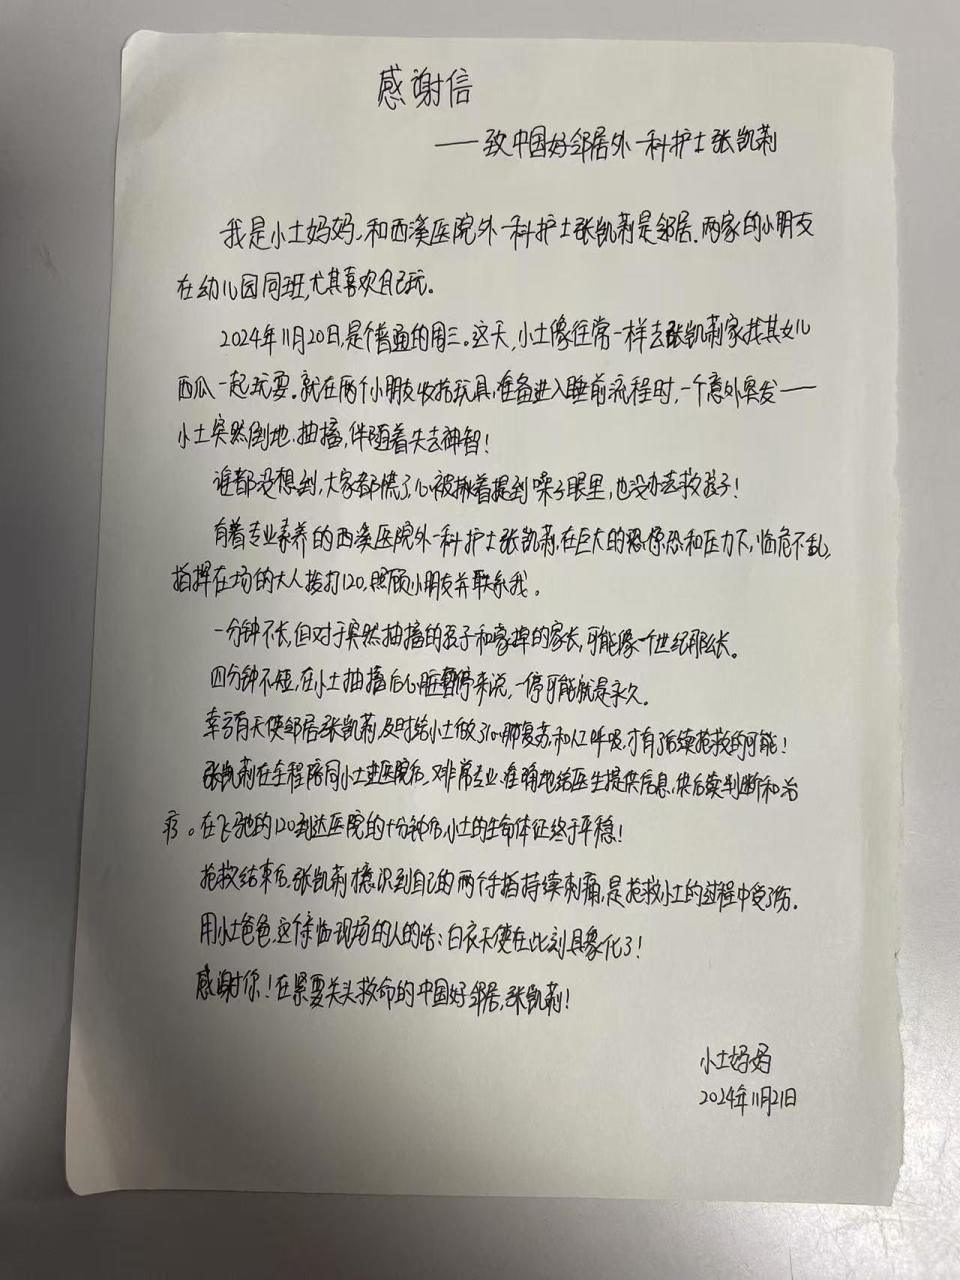 感谢信
——致中国好邻居外一科护士张凯莉
我是小土妈妈,和西溪医院外一科护士张凯莉是邻居.两家的小朋友
在幼儿园同班,尤其喜欢自己玩。
2024年11月20日,是个普通的周三。这天,小土像往常一样去张凯莉家找其女儿
西瓜一起玩耍.就在两个小朋友收拾玩具,准备进入睡前流程时,一个意外突发——
小土突然倒地.抽搐,伴随着失去神智!
谁都没想到,大家都慌了,心被揪着提到嗓子眼里,也没办法救孩子!
有着专业素养的西溪医院外一科护士张凯莉,在巨大的惊恐和压力下,临危不乱,
指挥在场的大人拨打120,照顾小朋友并联系我。
一分钟不长,但对于突然抽搐的孩子和的家长,可能像一个世纪那么长。
四分钟不短,在小土抽搐后心脏暂停来说,一停可能就是永久。
幸亏有天使邻居张凯莉,及时给小土做了心肺复苏,和人工呼吸,才有了后续抢救的可能!
张凯莉在全程陪同小土进医院后,又非常专业、准确地给医生提供信息,供后续判断和治
疗。在飞驰的120到达医院的十分钟后,小土的生命体征终于平稳!
抢救结束后,张凯莉才意识到自己的两个手指持续刺痛,是抢救小土的过程中受了伤.
用小土爸爸,这个亲临现场的人的话:白衣天使在此刻具象化了!
感谢你!在紧要关头救命的中国好邻居,张凯莉!
小土妈妈
2024年11月21日